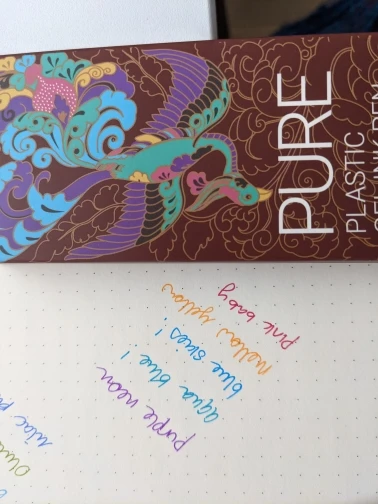 PURE
PLASTIC
GEL INK PEN
pink baby
mellow yellow
blue skies!
aqua blue!
purple neon
lilac